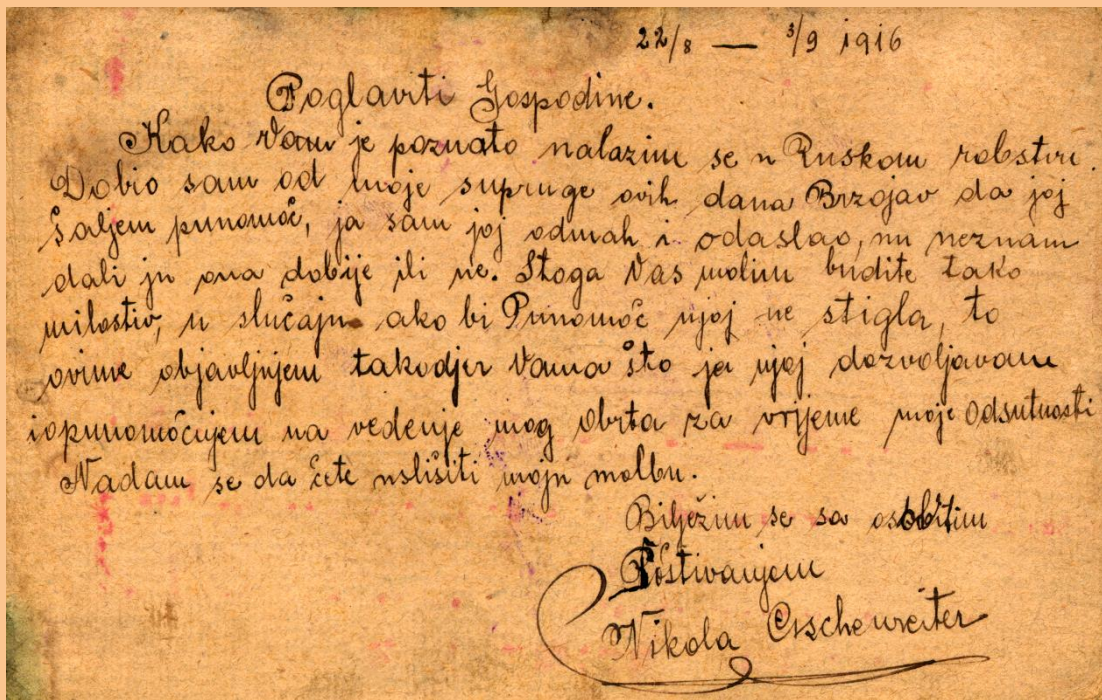 22/8 — 3/9 1916
Poglaviti Gospodine.
Kako Vam je poznato nalazim se u Ruskom robstvu.
Dobio sam od moje supruge ovih dana Brzojav da joj
šaljem punomoć, ja sam joj odmah i odaslao, nu neznam
dali ju ona dobije ili ne. Stoga Vas molim budite tako
milostiv, u slučaju ako bi Punomoć njoj ne stigla, to
ovime objavljujem takodjer Vama što ja njoj dozvoljavam
i opunomoćujem na vedenje mog obrta za vrijeme moje Odsutnosti
Nadam se da ćete uslišiti moju molbu.
Bilježim se sa osobitim
Poštivanjem
Nikola